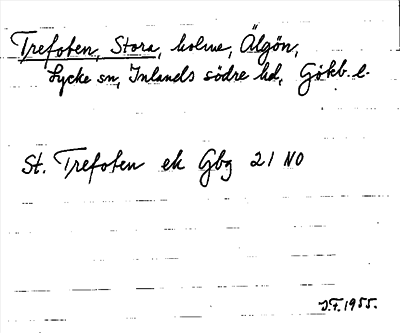 Trefoten, Stora, holme, Älgön,
Lycke sn, Inlands södre hd, Gökb. l.
St. Trefoten ek Gbg 21 NO
J.F. 1955.